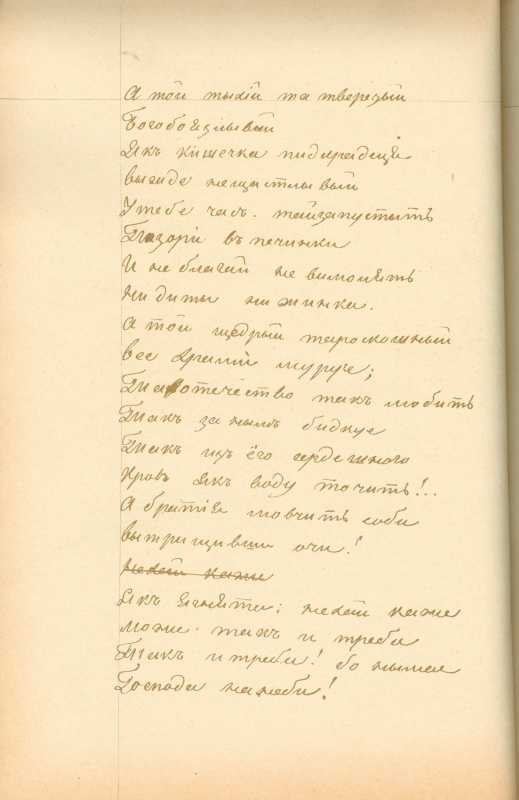 А той тыхій та тверезый
Богобоязлывый
Якъ кишечка пидкрадеця
выжде нещастлывый
У тебе часъ. тай запустыть
Пазори въ печинки
И не благай не вимолять
ни диты ни жинка.
А той щедрый та роскошный
все храмы муруе;
Та отечество такъ любить
Такъ за нымъ бидкує
Такъ изъ ёго сердешного
Кровъ якъ воду точить!..
А братія мовчить соби
вытрищивши очи!
нехай каже
Якъ ягнята: нехай каже
може такъ и треба
Такъ и треба! бо нымае
Господа на неби!